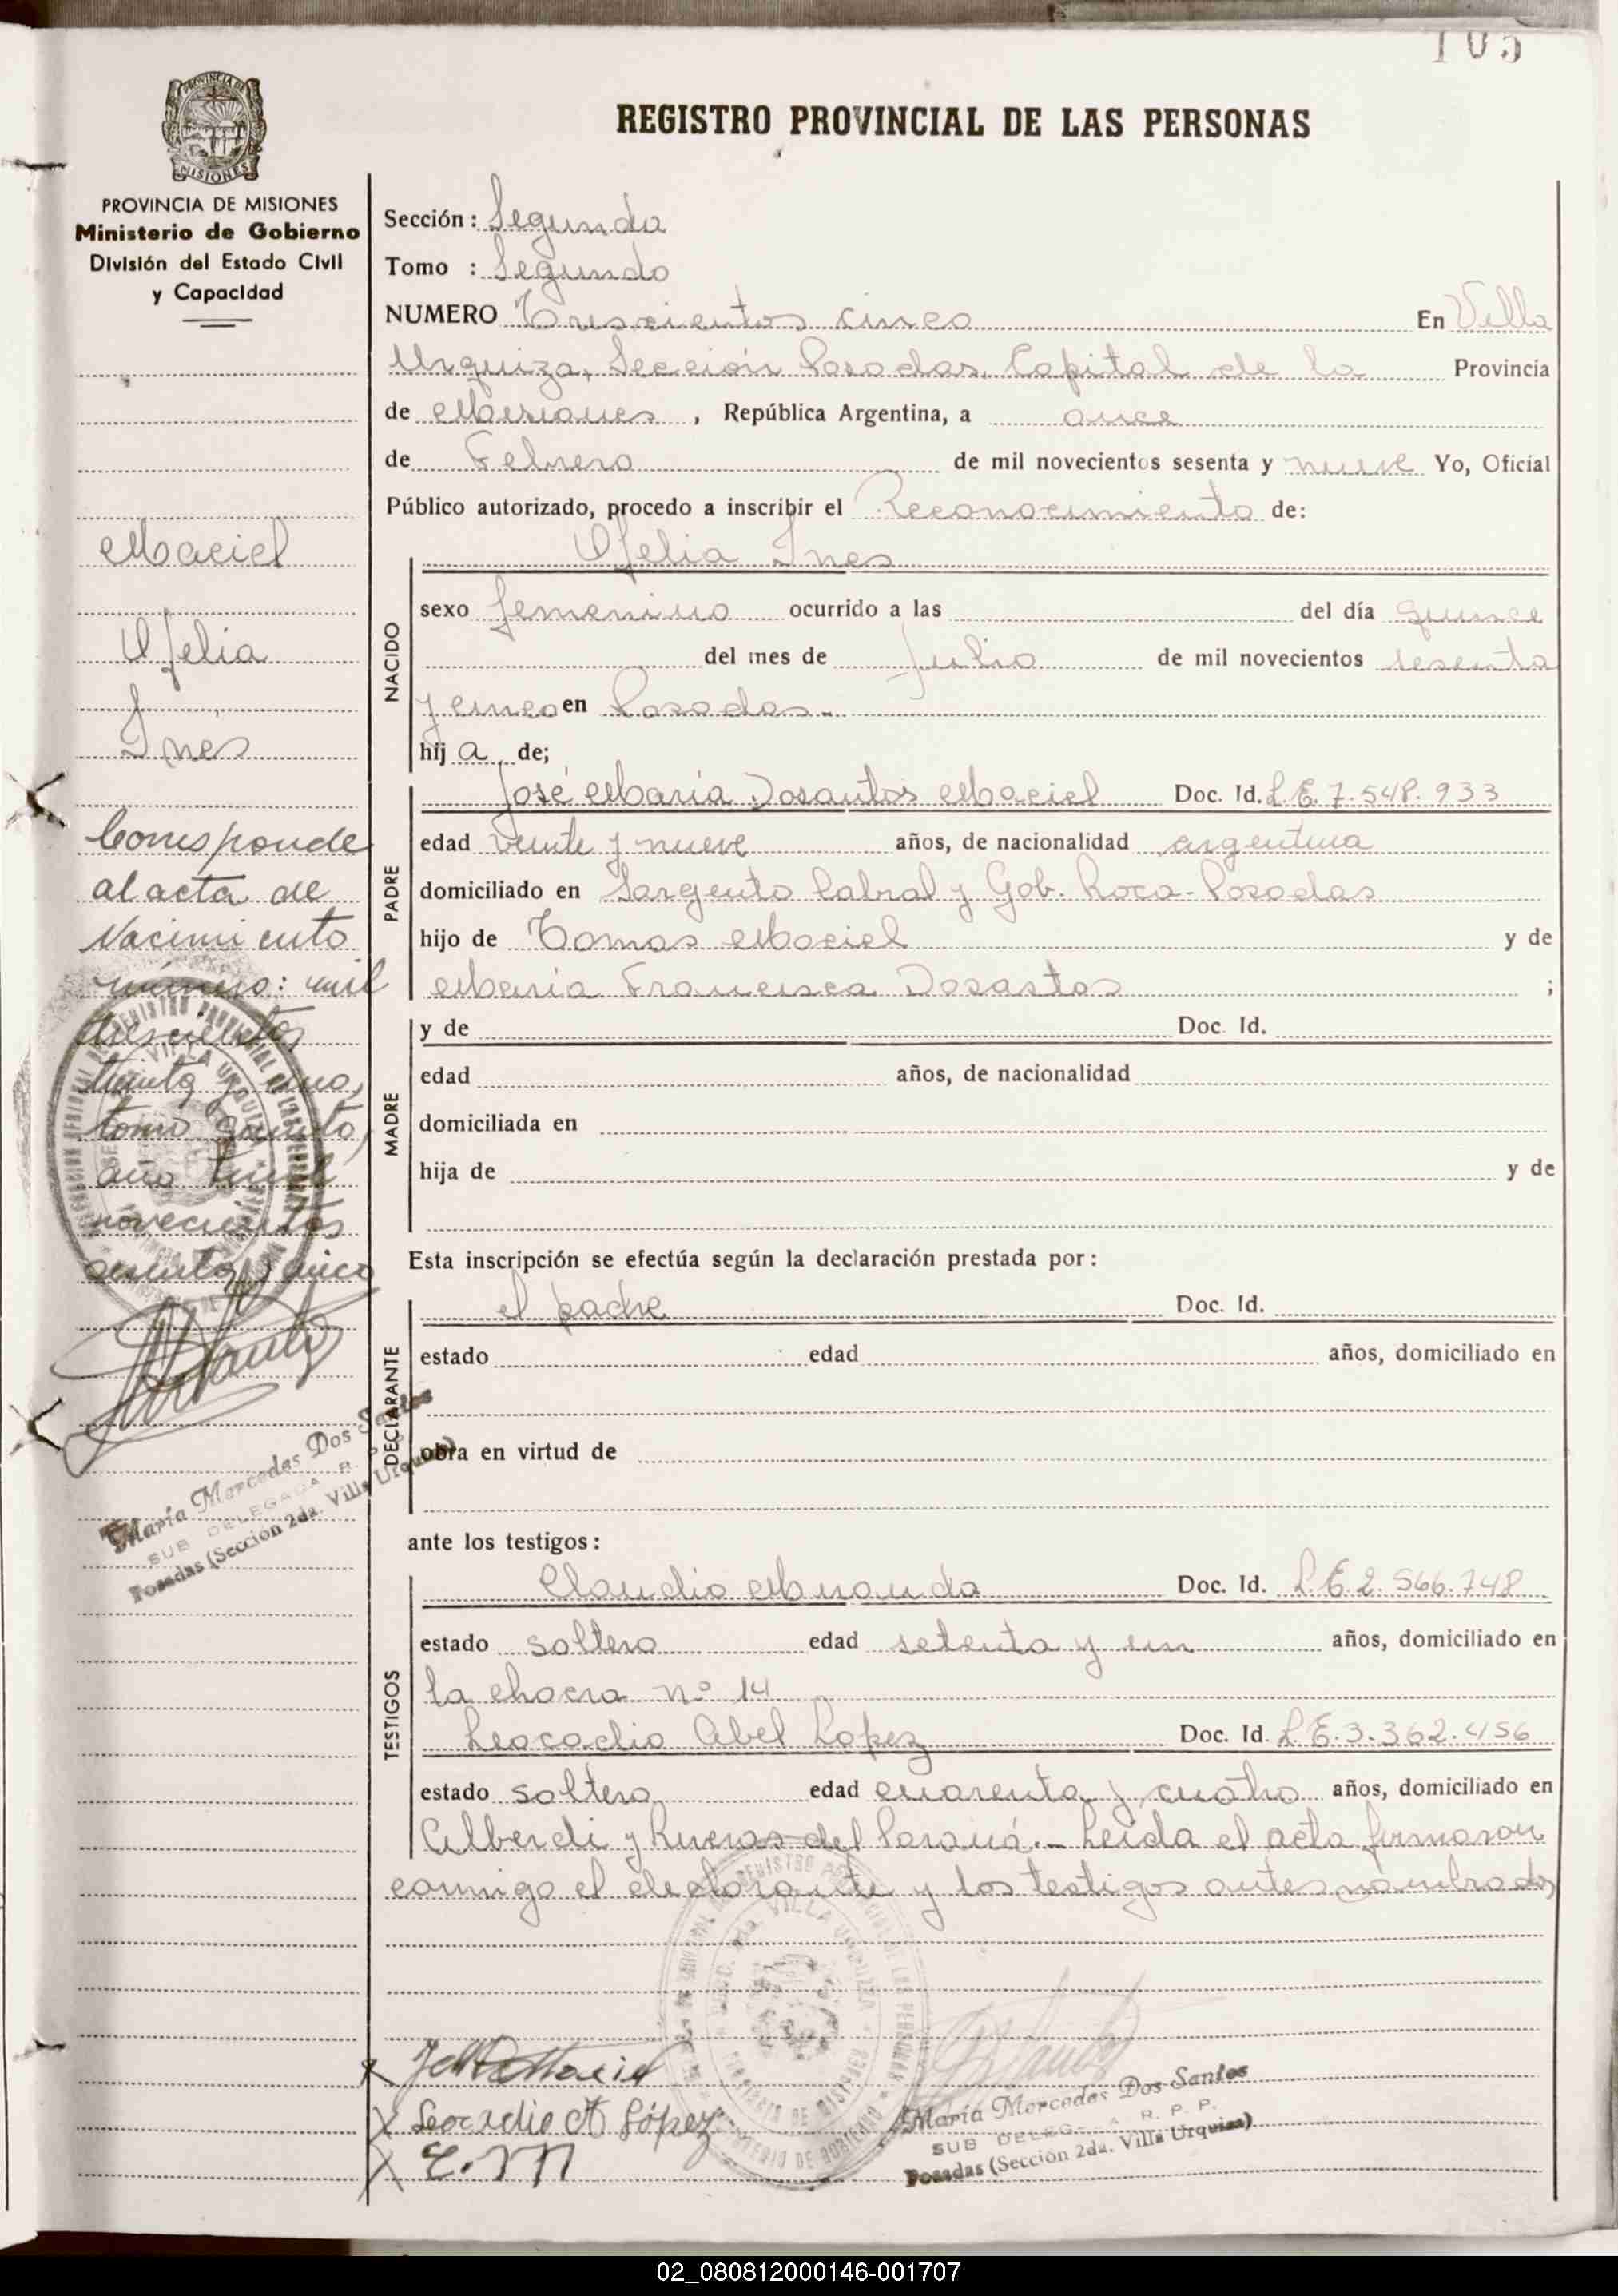 105
PROVINCIA DE MISIONES
PROVINCIA DE MISIONES
Ministerio de Gobierno
División del Estado Civil
y Capacidad
REGISTRO PROVINCIAL DE LAS PERSONAS
Sección: Segunda
Tomo : Segundo
NUMERO Trescientos cinco En Villa
Urquiza, Sección Posadas, Capital de la Provincia
de Misiones, República Argentina, a once
de Febrero de mil novecientos sesenta y nueve Yo, Oficial
Público autorizado, procedo a inscribir el Reconocimiento de:
Maciel
Ofelia
Ines
Corresponde
al acta de
Nacimiento
número: mil
trescientos
treinta y uno,
tomo quinto,
año mil
novecientos
sesenta y cinco
María Mercedes Dos Santos
SUB DELEGADA R. P. P.
Posadas (Sección 2da. Villa Urquiza)
NACIDO
Ofelia Ines
sexo femenino ocurrido a las del día quince
del mes de Julio de mil novecientos sesenta
y cinco en Posadas.-
hij a de;
PADRE
José Maria Dosantos Maciel Doc. Id. L.E. 7.548.933
edad veinte y nueve años, de nacionalidad argentina
domiciliado en Sargento Cabral y Gob. Roca-Posadas
hijo de Tomas Maciel y de
Maria Francisca Dosastos ;
MADRE
y de Doc. Id.
edad años, de nacionalidad
domiciliada en
hija de y de
Esta inscripción se efectúa según la declaración prestada por:
DECLARANTE
el padre Doc. Id.
estado edad años, domiciliado en
obra en virtud de
ante los testigos:
TESTIGOS
Claudio Miranda Doc. Id. L.E.2.566.748
estado soltero edad setenta y un años, domiciliado en
la chacra nº 14
Leocadio Abel Lopez Doc. Id. L.E.3.362.456
estado soltero edad cuarenta y cuatro años, domiciliado en
Alberdi y Riveras del Paraná.- Leida el acta firmaron
conmigo el declarante y los testigos antes nombrados
Maciel
Leocadio A López
C.M
María Mercedes Dos Santos
SUB DELEG A R. P. P.
Posadas (Sección 2da. Villa Urquiza)
02_080812000146-001707